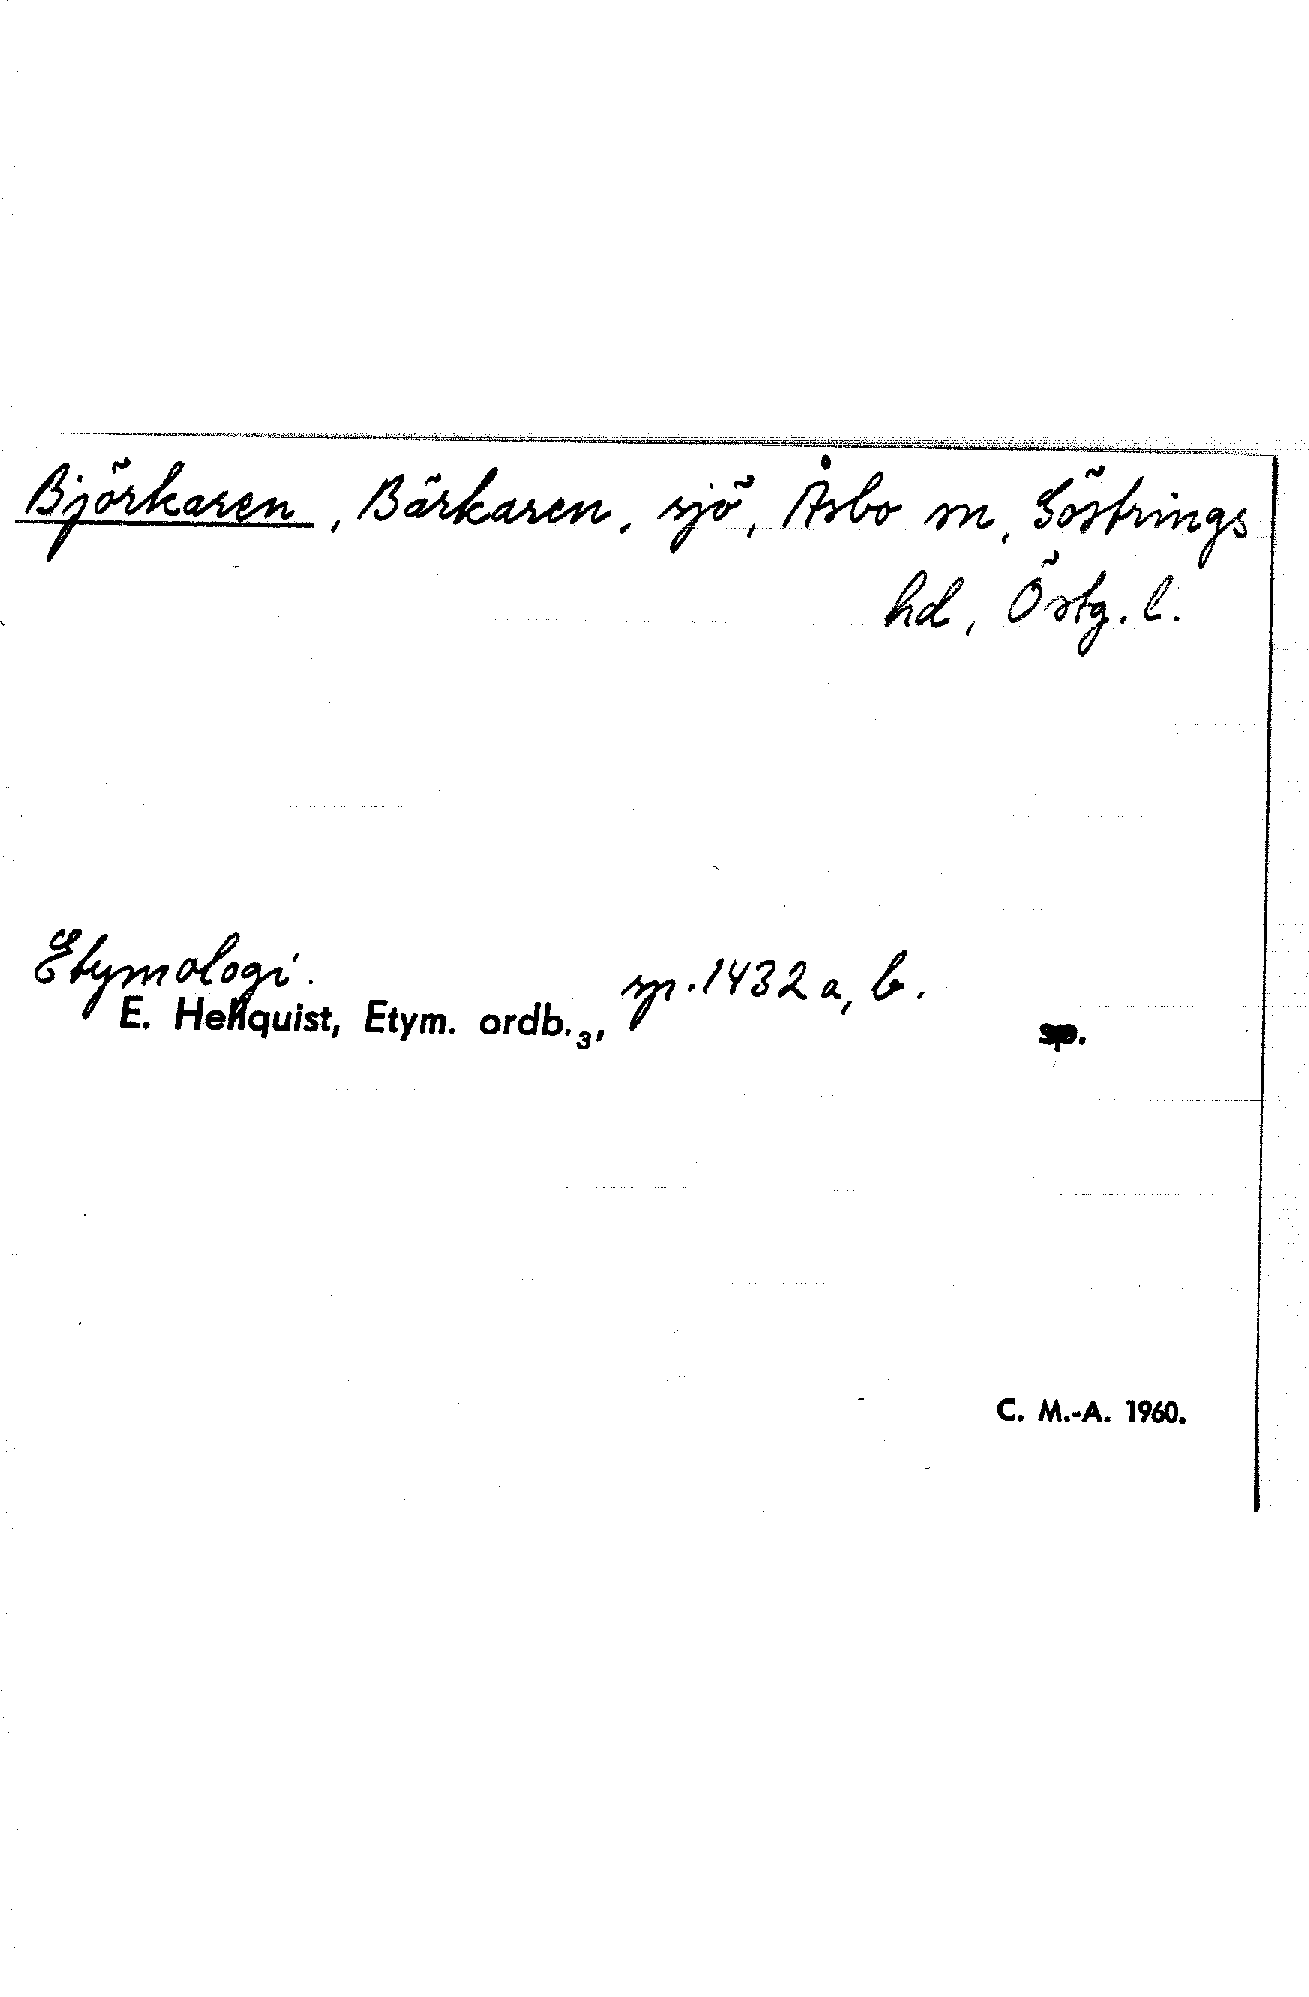 Björkaren, Bärkaren, sjö, Åsbo sn, Göstrings
hd, Östg. l.
Etymologi.
E. Hellquist, Etym. ordb.3, sp. 1432 a, b. sp.
C. M.-A. 1960.